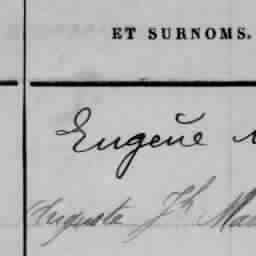 ET SURNOMS.
Eugène
Auguste Jh Mau